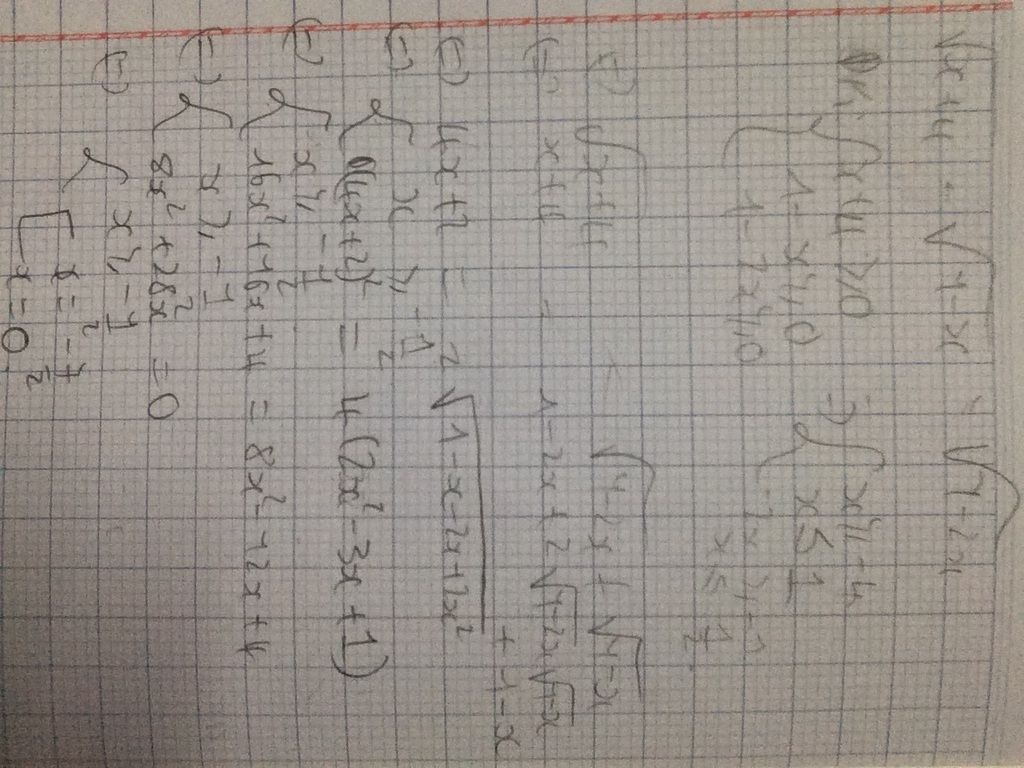 √x+4 - √1-x = √1-2x
ĐK: { x+4 ≥ 0
1-x ≥ 0
1-2x ≥ 0
=> { x ≥ -4
x ≤ 1
-2x ≥ -1
x ≤ 1/2
(=) √x+4 = √1-2x + √1-x
(=) x+4 = 1-2x + 2√1-2x √1-x + 1-x
(=) 4x+2 = 2√1-x-2x+2x²
(=) { x ≥ -1/2
(4x+2)² = 4(2x²-3x+1)
(=) { x ≥ -1/2
16x²+16x+4 = 8x²-12x+4
(=) { x ≥ -1/2
8x²+28x = 0
(=) { x ≥ -1/2
[ x = -7/2
x = 0